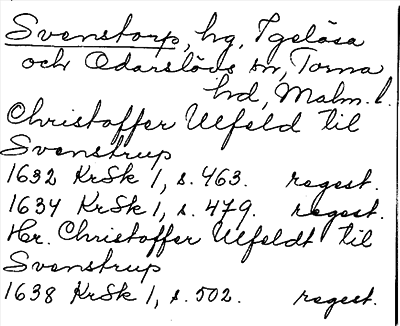 Svenstorp, hg, Igelösa
och Odarslövs sn, Torna
hd, Malm. l.
Christoffer Ulfeld til
Svenstrup
1632 KrSk 1, s. 463. regest.
1634 KrSk 1, s. 479. regest.
Hr. Christoffer Ulfeldt til
Svenstrup
1638 KrSk 1, s. 502. regest.